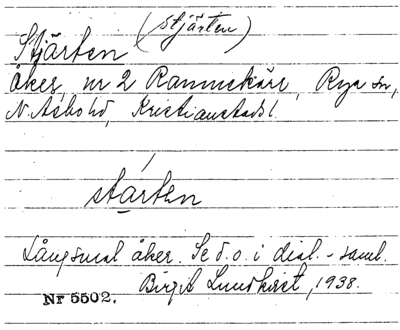 Stjärten (stjärten)
åker, nr 2 Rammekärr, Rya sn,
N. Åsbo hd, Kristianstads l.
stạrten
Långsmal åker. Se d.o. i dial.-saml.
Birgit Lundkvist, 1938.
Nr 5502.